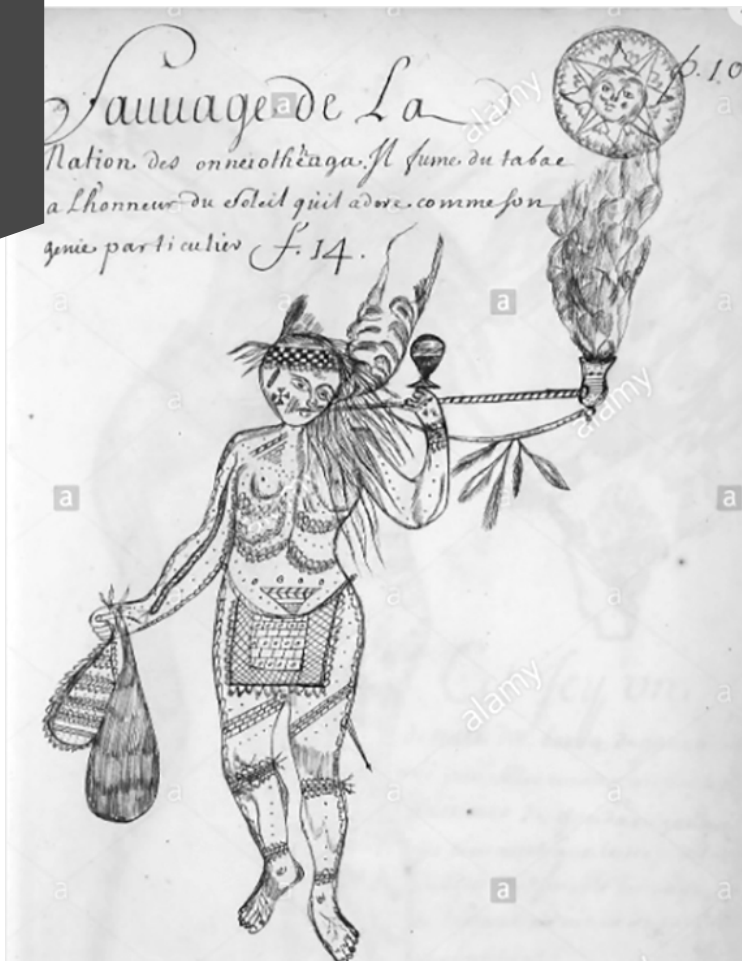 Sauuage de La
p. 10
Nation des onneiothéaga. Il fume du tabac
a Lhonneur du Soleil quil adore comme son
genie particulier f. 14.
alamy
alamy
alamy